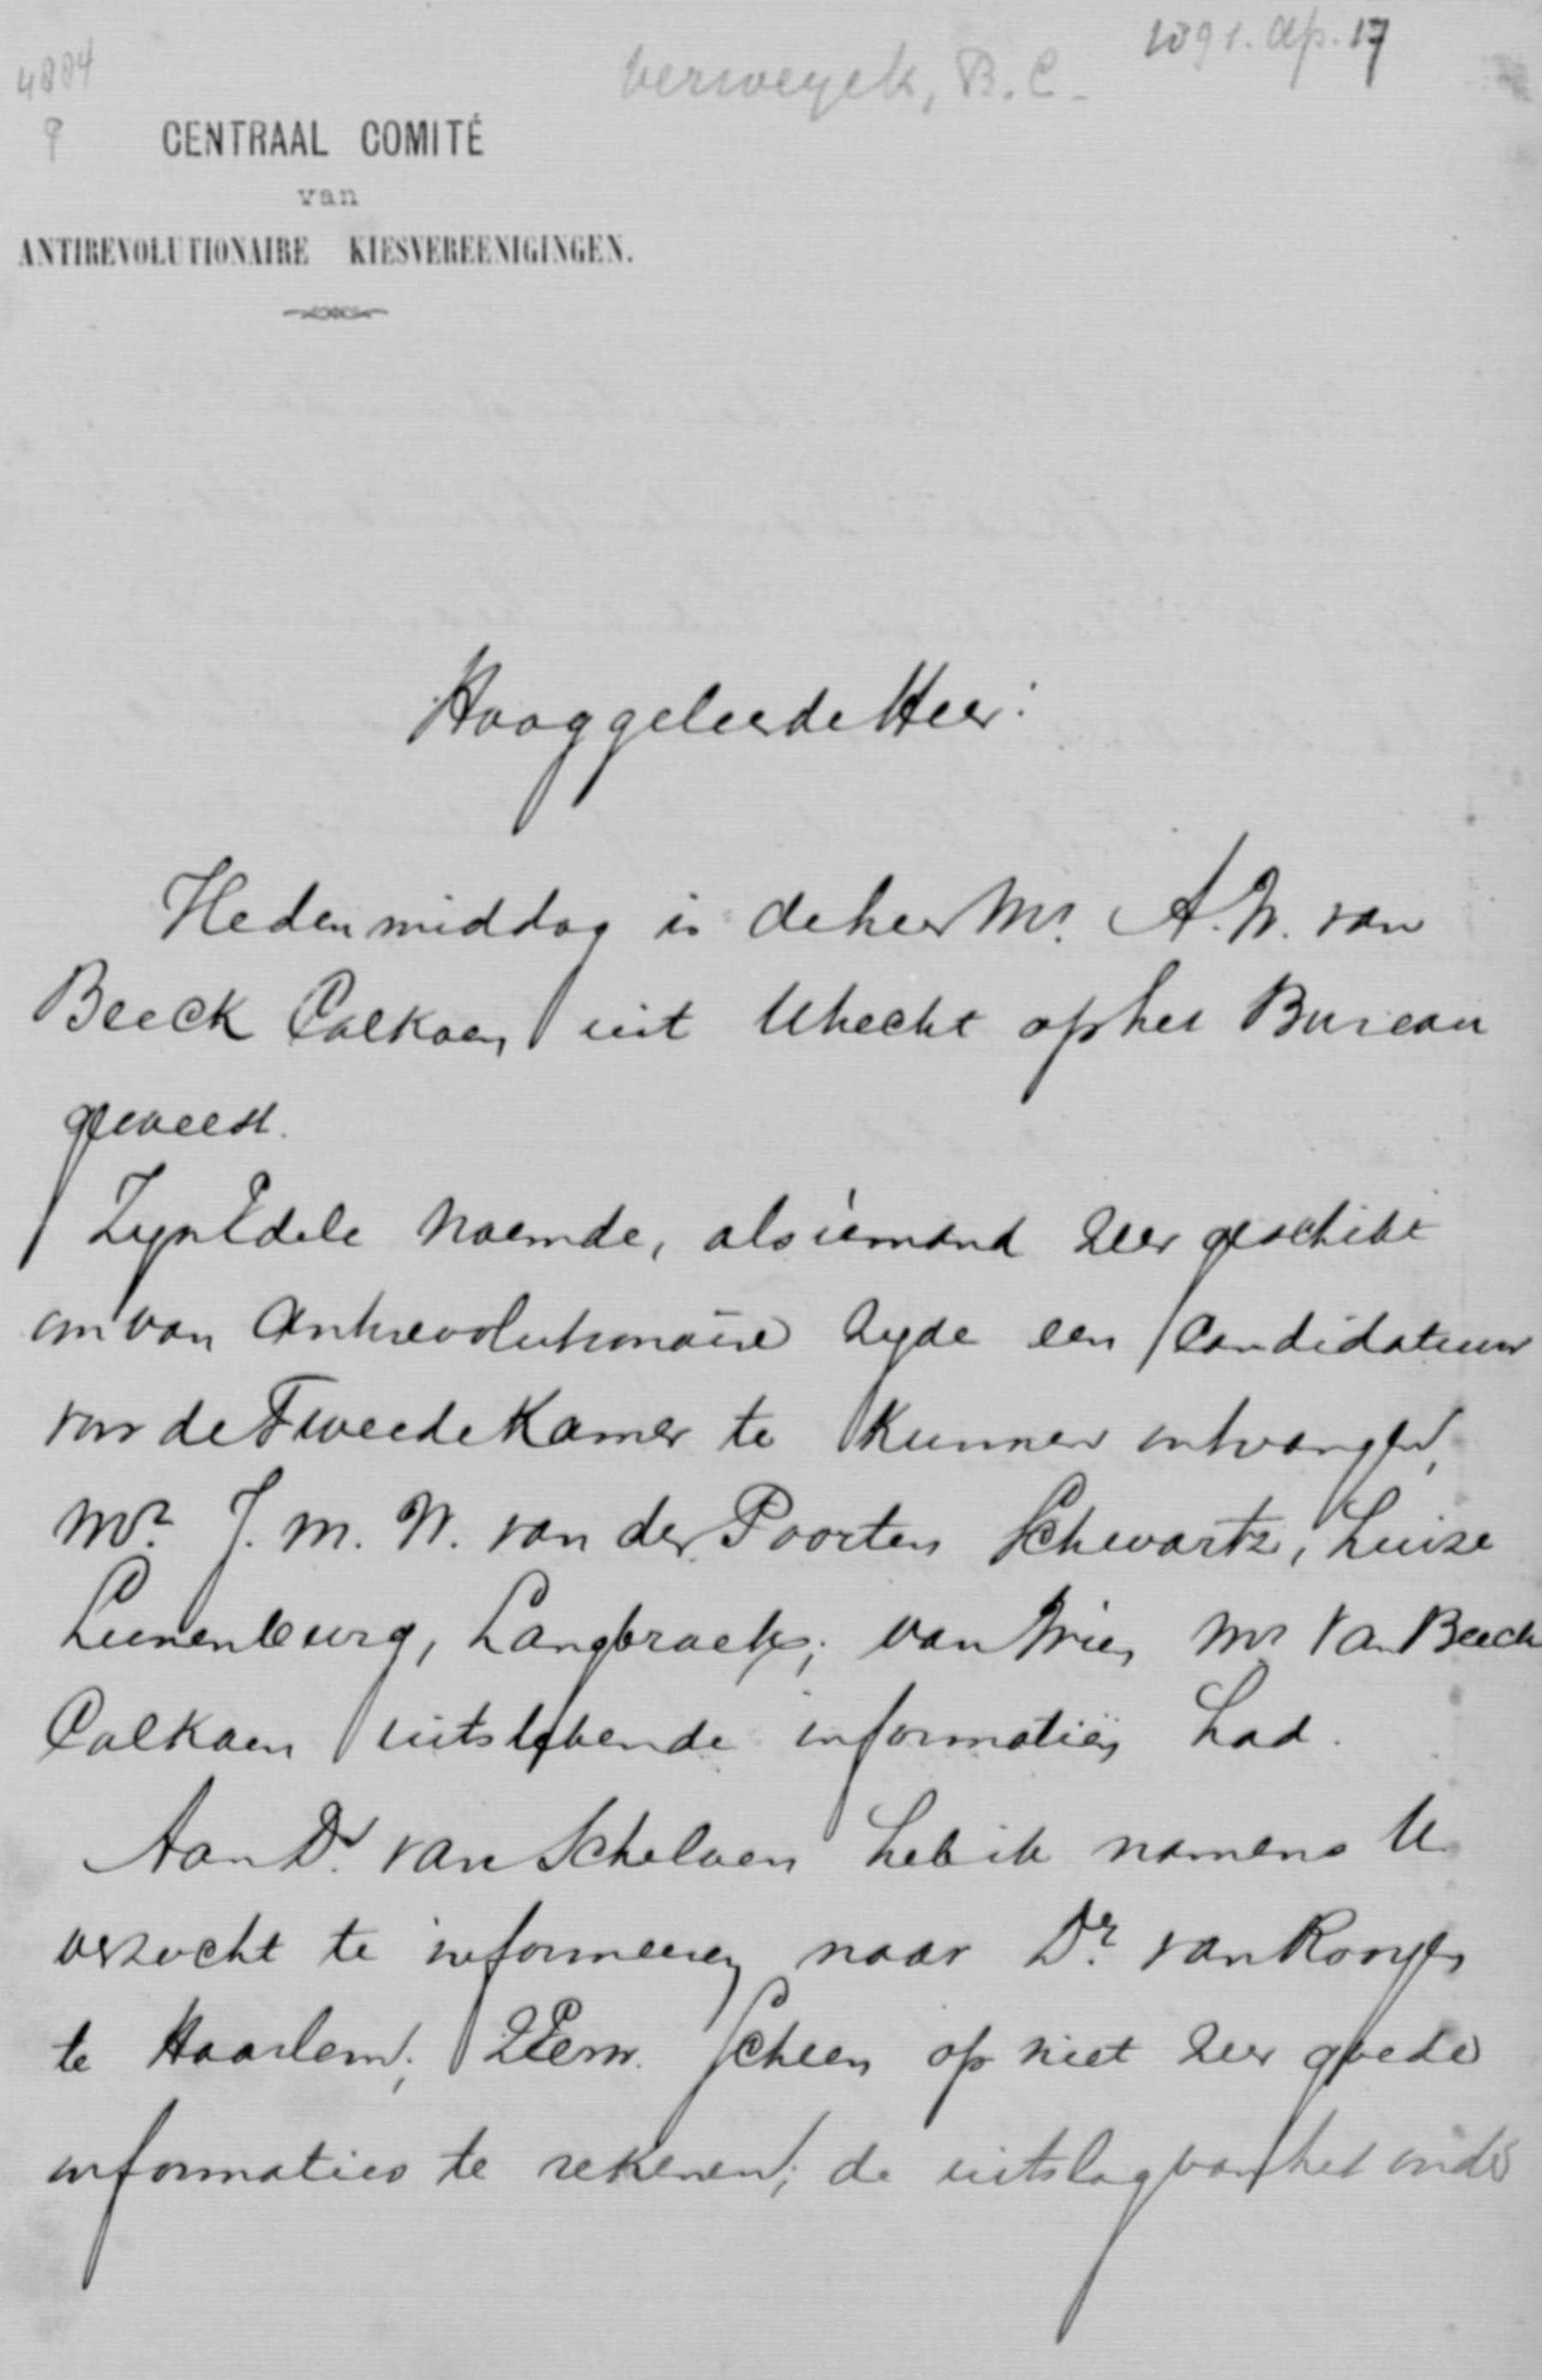 1891. Ap. 17
4884
Verweyck, B. C.
CENTRAAL COMITÉ
van
ANTIREVOLUTIONAIRE KIESVEREENIGINGEN.
Hooggeleerde Heer:
Heden middag is de heer Mr. A. W. van
Beeck Calkoen uit Utrecht op het Bureau
geweest.
Zijn Edele noemde, als iemand zeer geschikt
om van Antirevolutionaire zyde een Candidatuur
voor de Tweede Kamer te kunnen ontvangen,
Mr. J. M. W. van der Poorten Schwartz, huize
Lunenburg, Langbroek; van wien Mr van Beeck
Calkoen uitstekende informatiën had.
Aan Dr. van Schelven heb ik namens U
verzocht te informeeren naar Dr. van Rongen
te Haarlem; ZEerw. scheen op niet zeer goede
informaties te rekenen; de uitslag van het onder